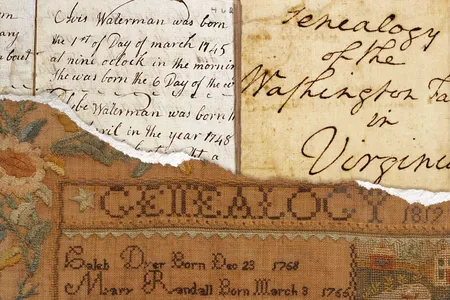 Avis Waterman was born
the 1st of Day of march 1745
at nine oclock in the mornin
She was born the 6 Day of the
Phebe Waterman was born
pril in the year 1748
at a
ary
about
Genealogy
of the
Washington Fa
in
Virginia
GENEALOGY 1812
Caleb Dyer Born Dec 23 1768
Mary Randall Born March 3 1766